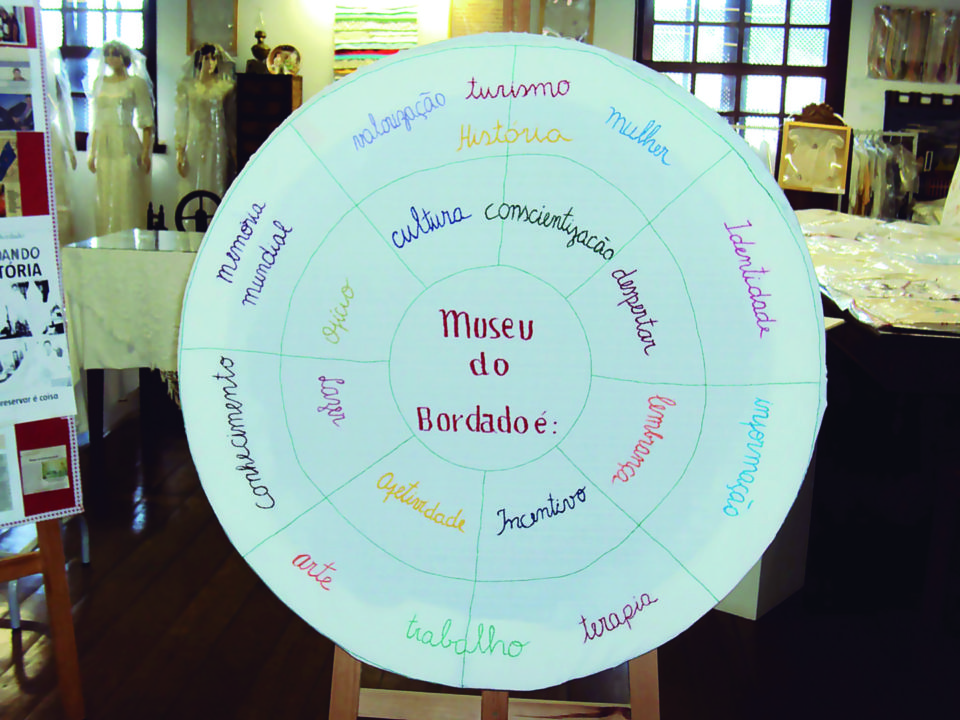 Museu
do
Bordado é:
cultura
conscientização
despertar
lembrança
Incentivo
Afetividade
Lazer
Ofício
valorização
turismo
História
mulher
Identidade
informação
terapia
trabalho
arte
conhecimento
memória
mundial
ANDO
TÓRIA
reservar é coisa